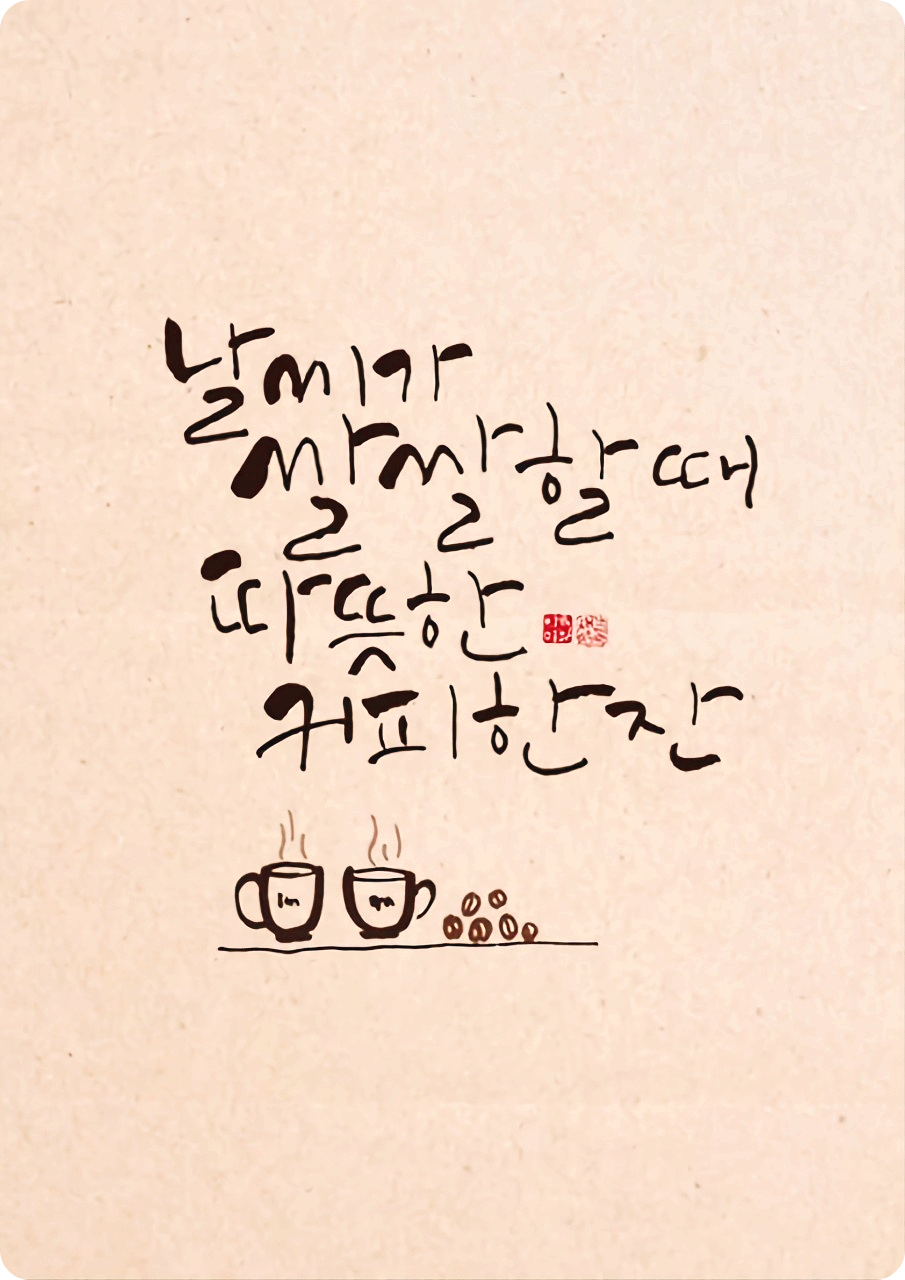 날씨가
쌀쌀할 때
따뜻한
커피한잔